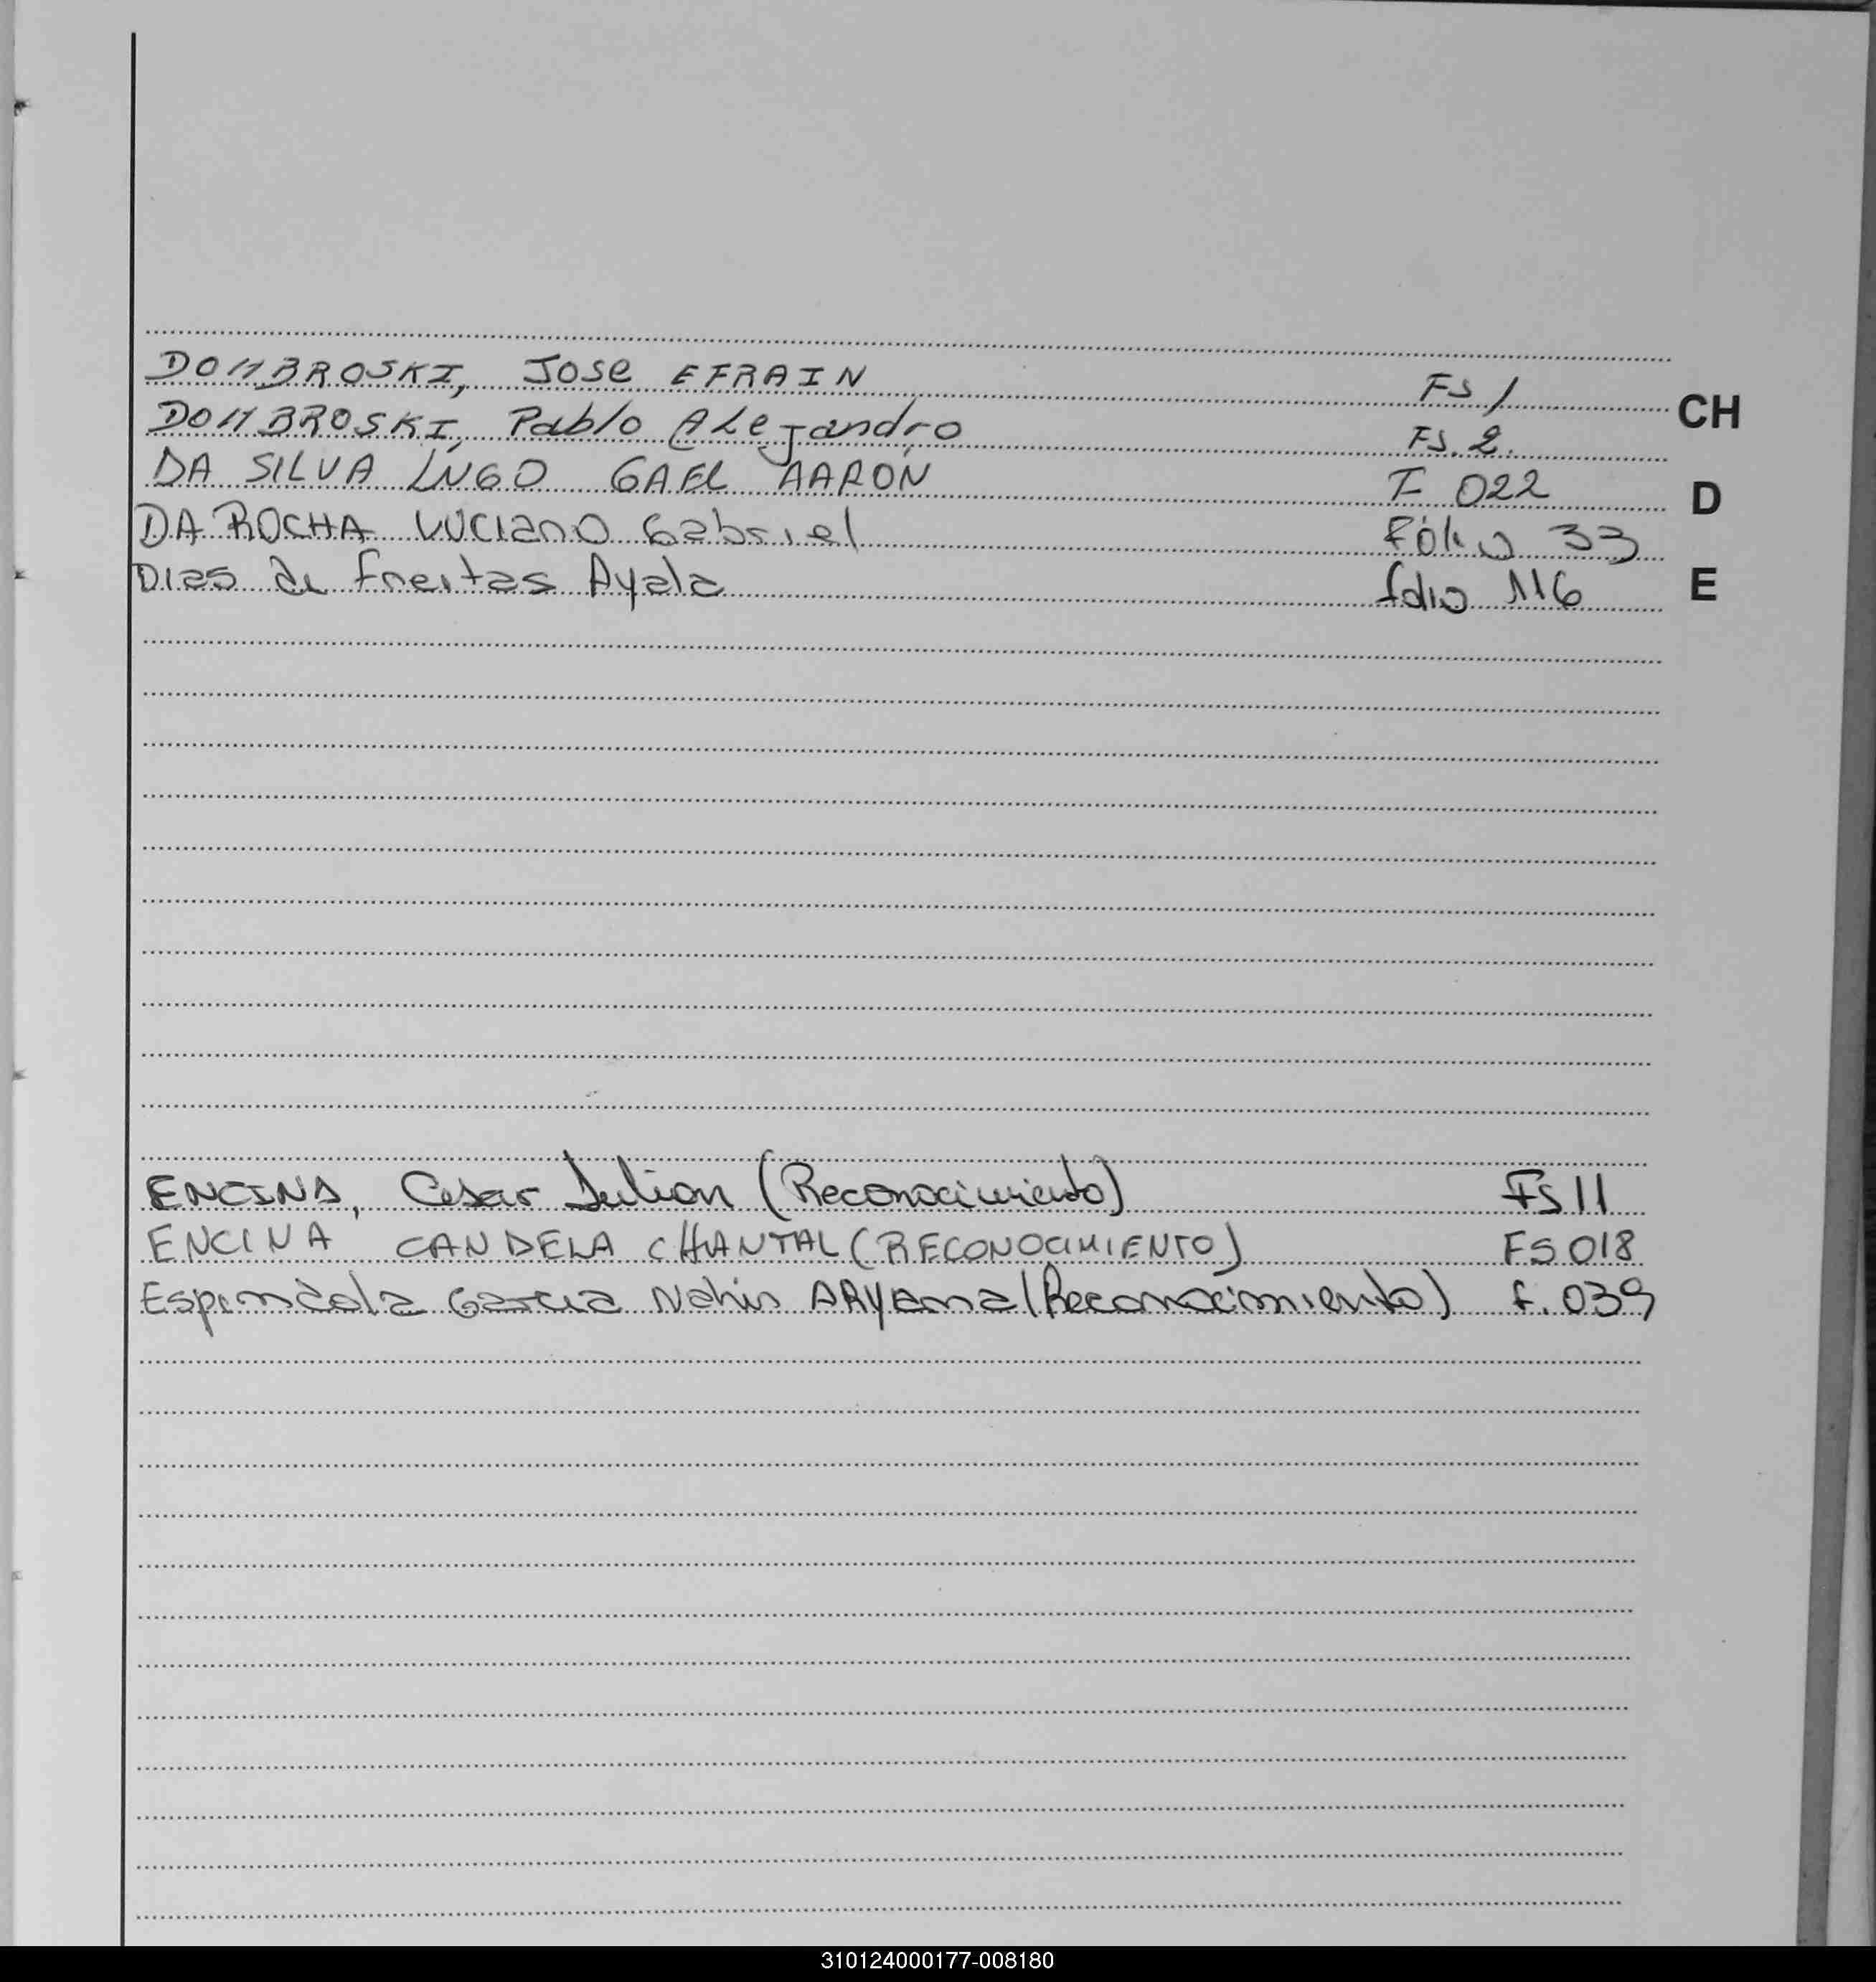 DOMBROSKI, Jose EFRAIN FS 1
CH
DOMBROSKI, Pablo ALeJandro FS. 2.
DA SILVA ÍNGO GAEL AARÓN F 022
D
DA ROCHA LUCIANO Gabriel Fólio 33
Dias de Freitas Ayala folio 116
E
ENCINA, Cesar Julian (Reconocimiento) FS 11
ENCINA CANDELA CHANTAL (RECONOCIMIENTO) FS 018
Espindola Garcia Nahir ARYAma (Reconocimiento) f. 039
310124000177-008180